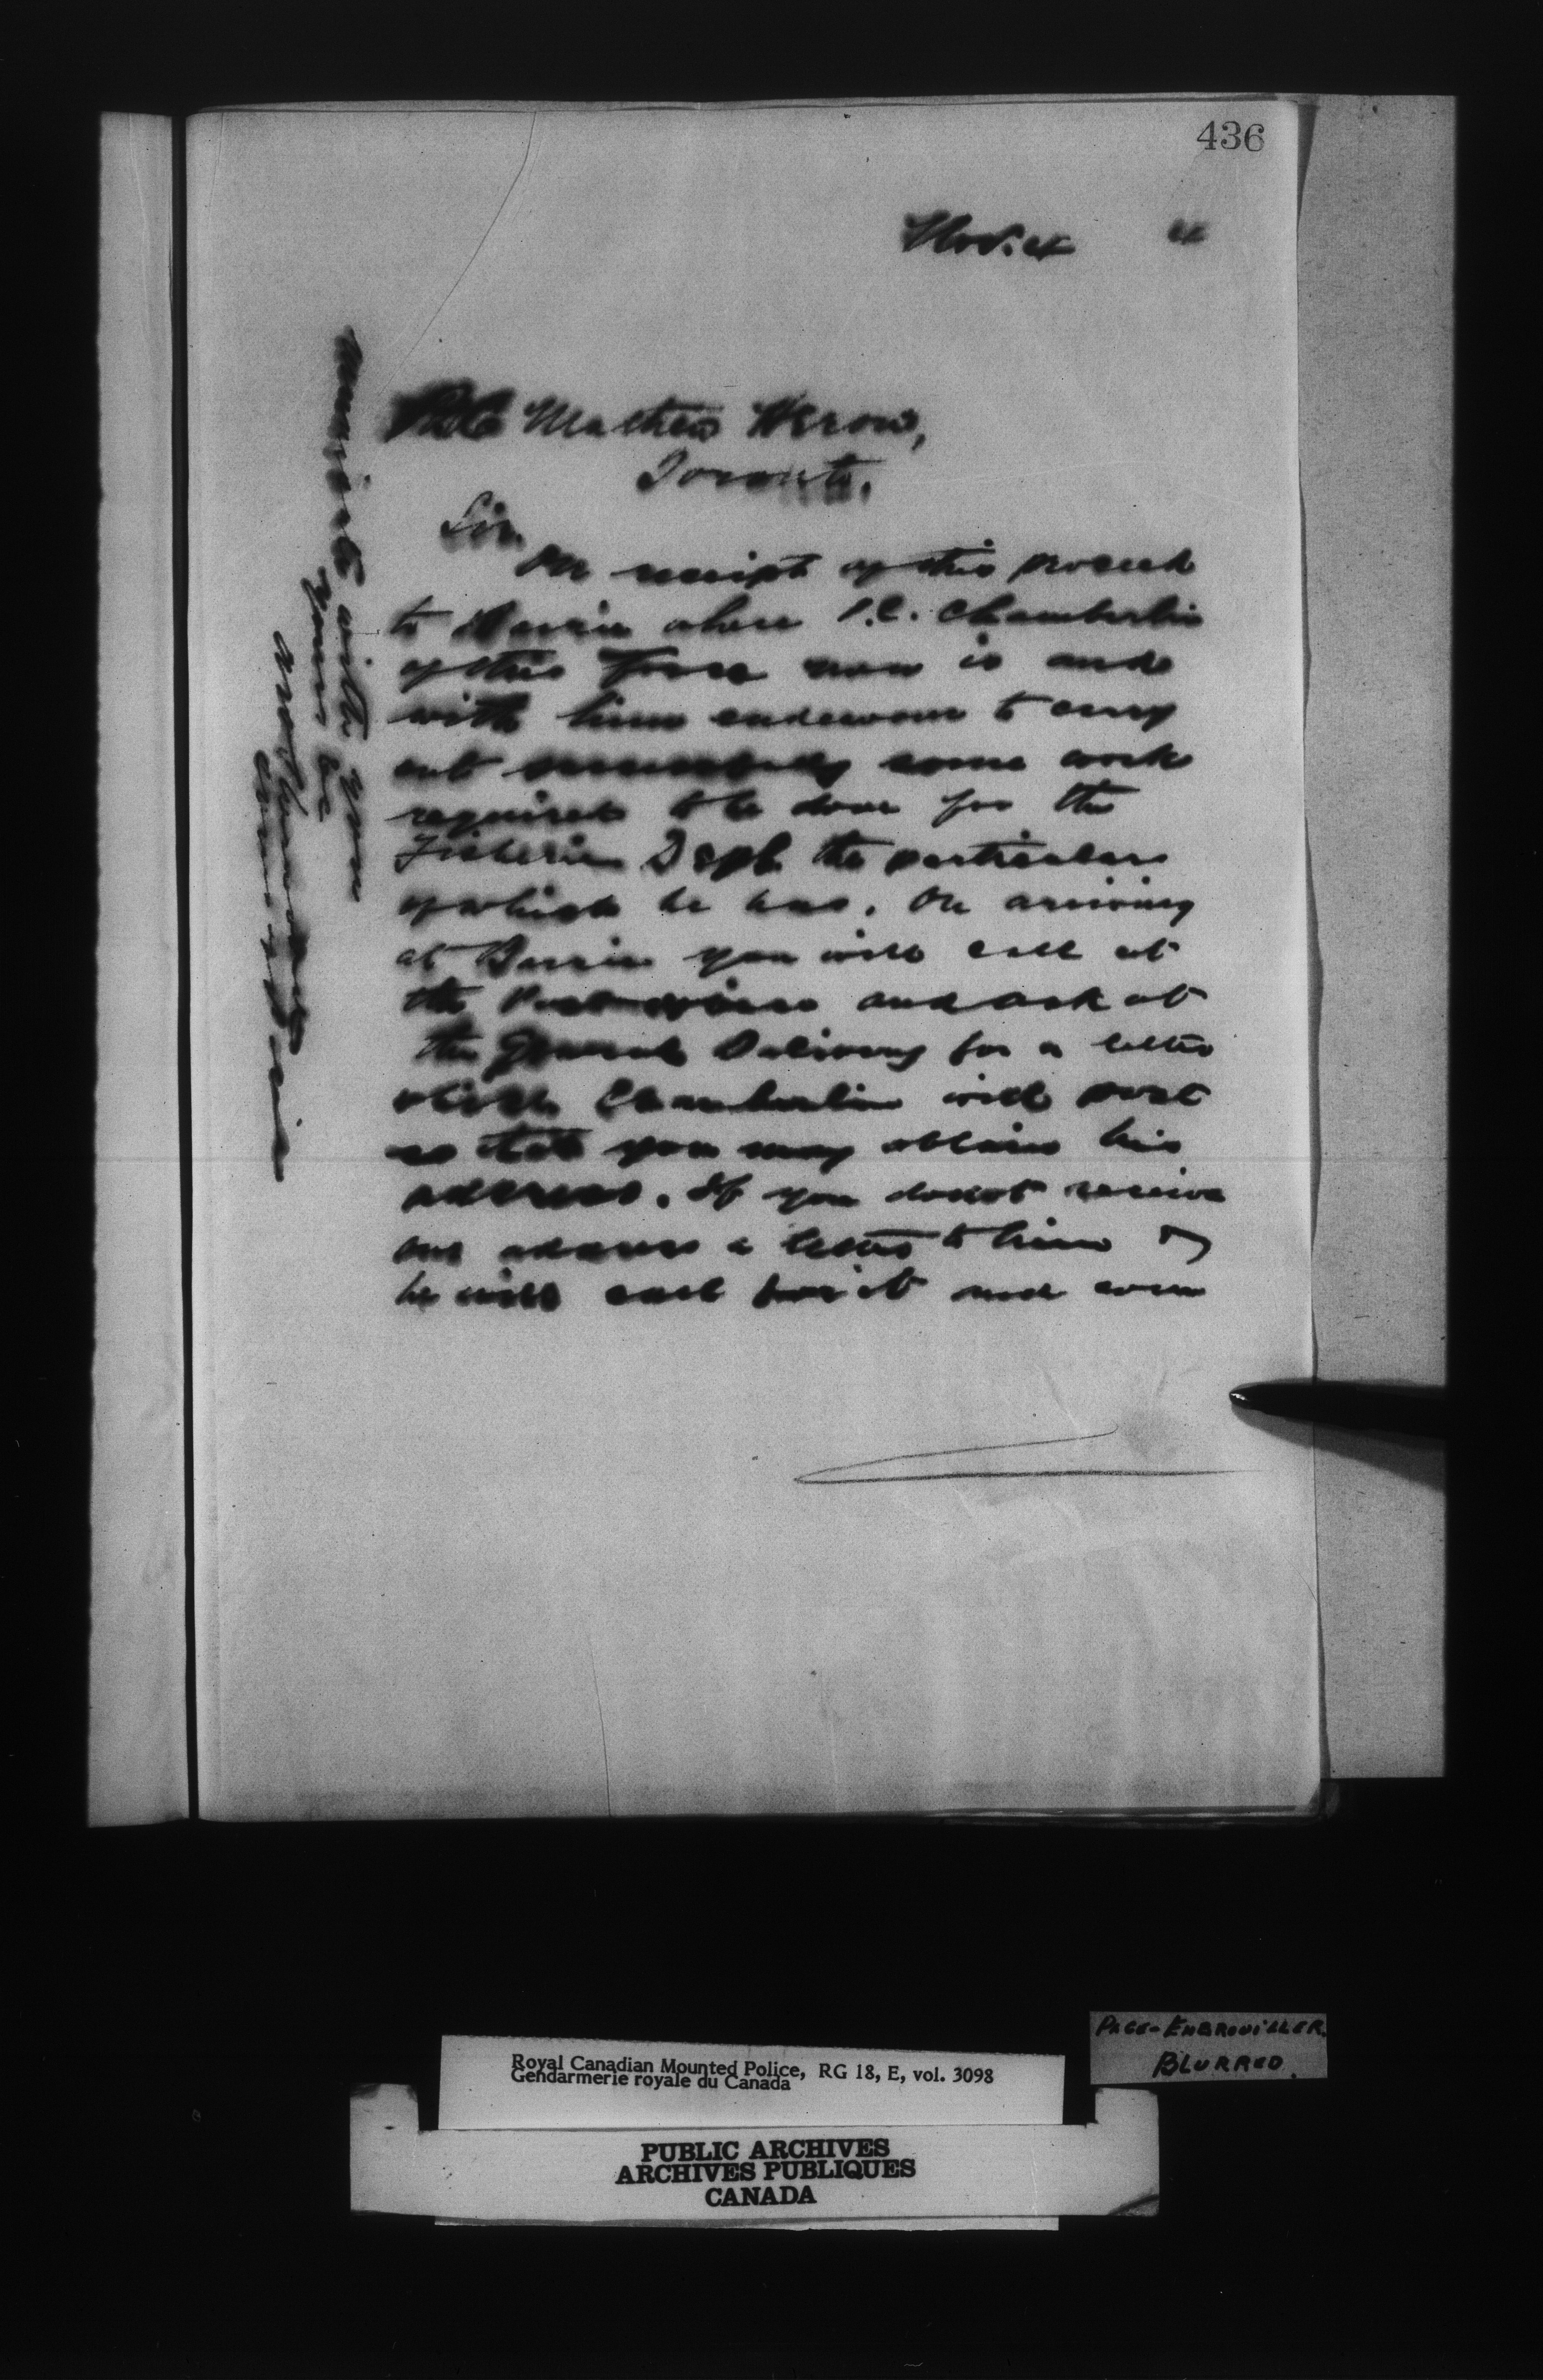 436
Nov. 4
Mathew
Toronto.
Sir.
On receipt of this proceed
to Barrie where P.C. Chamberlin
of this Force now is and
with him endeavour to carry
out some work
required to be done for the
Fisheries Dept. the particulars
of which he has. On arriving
at Barrie you will call at
the Post office and ask at
the General Delivery for a letter
which Chamberlin will post
so that you may obtain his
address. If you do not receive
one address a letter to him &
he will call for it and com
municate with you
Yours &c
Royal Canadian Mounted Police, RG 18, E, vol. 3098
Gendarmerie royale du Canada
PAGE-EMBROUILLER.
BLURRED.
PUBLIC ARCHIVES
ARCHIVES PUBLIQUES
CANADA